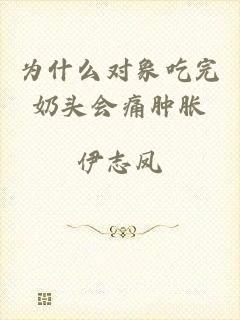 为什么对象吃完
奶头会痛肿胀
伊志风